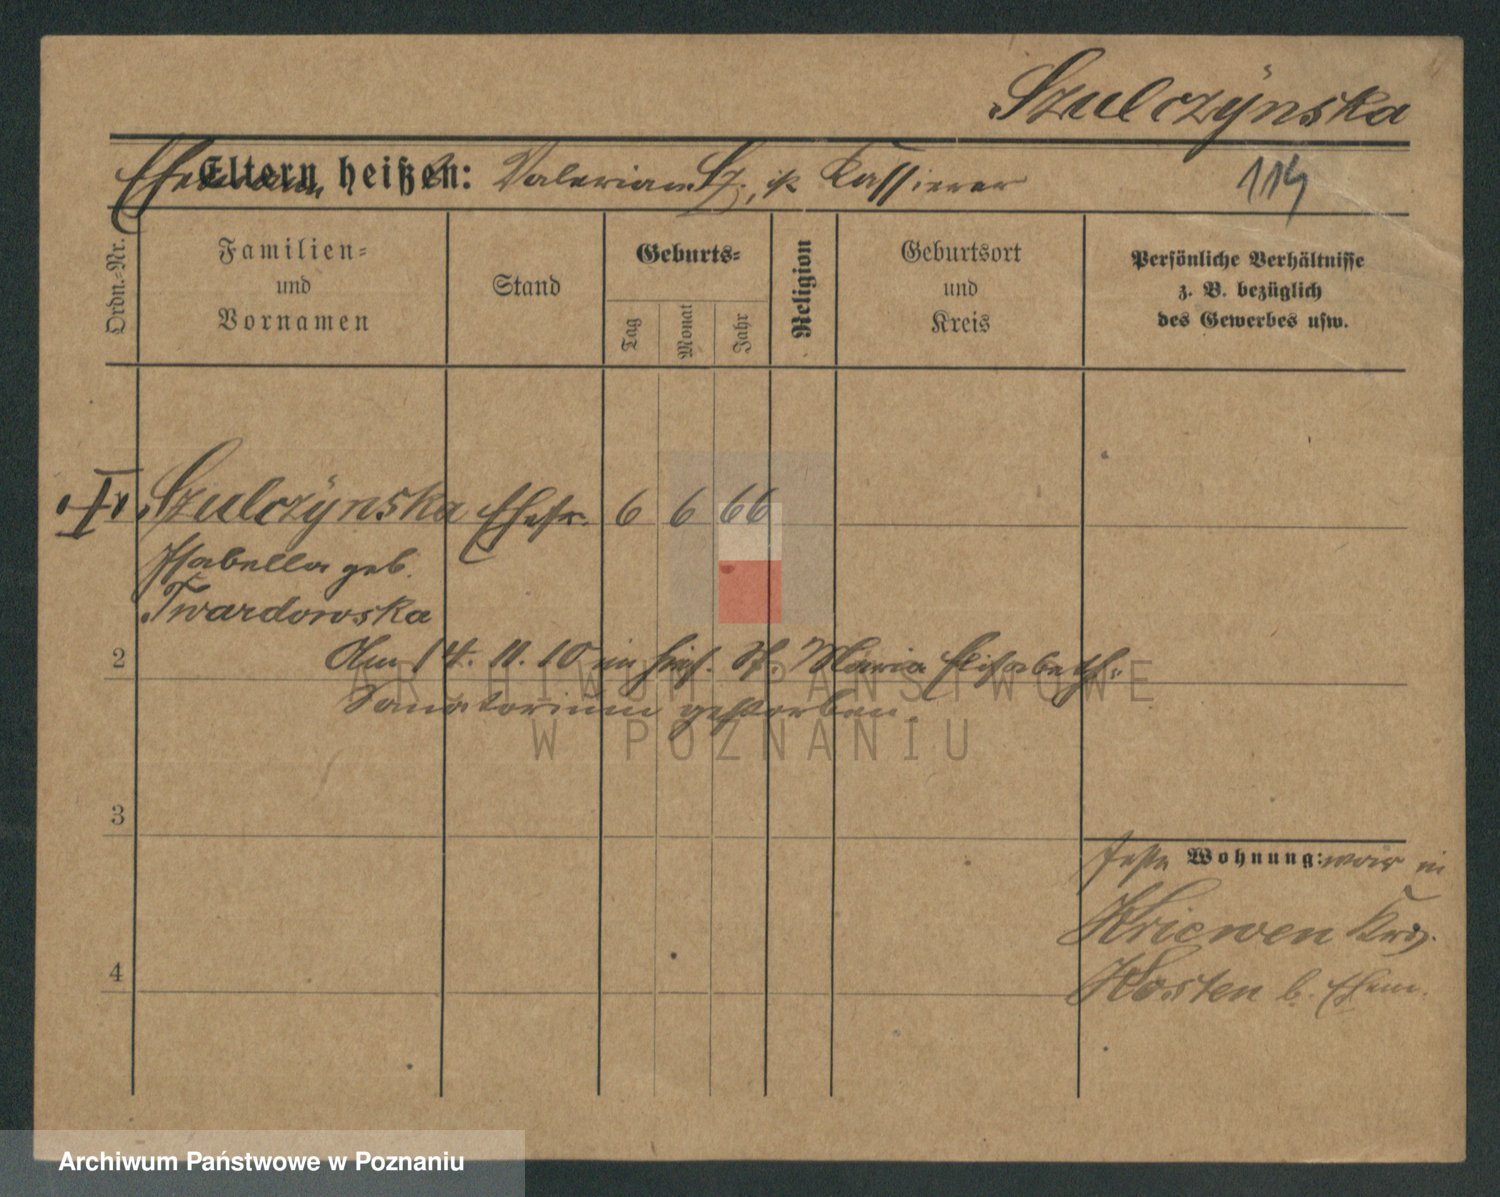 Szulczyńska
Ehemann heißt: Valerian Sz., ist Kassierer
114
Eltern heißen:
Ordn.-Nr.
Familien-
und
Vornamen
Stand
Geburts-
Tag
Monat
Jahr
Religion
Geburtsort
und
Kreis
Persönliche Verhältnisse
z. B. bezüglich
des Gewerbes usw.
I Szulczyńska Ehefr. 6 6 66
Isabella geb.
Twardowska
2 Am 14. 11. 10 im hies. St. Maria Elisabeth-
Sanatorium gestorben.
3
Wohnung: war in
Kriewen Krs.
4 Kosten b. Ehem.
ARCHIWUM PAŃSTWOWE
W POZNANIU
Archiwum Państwowe w Poznaniu